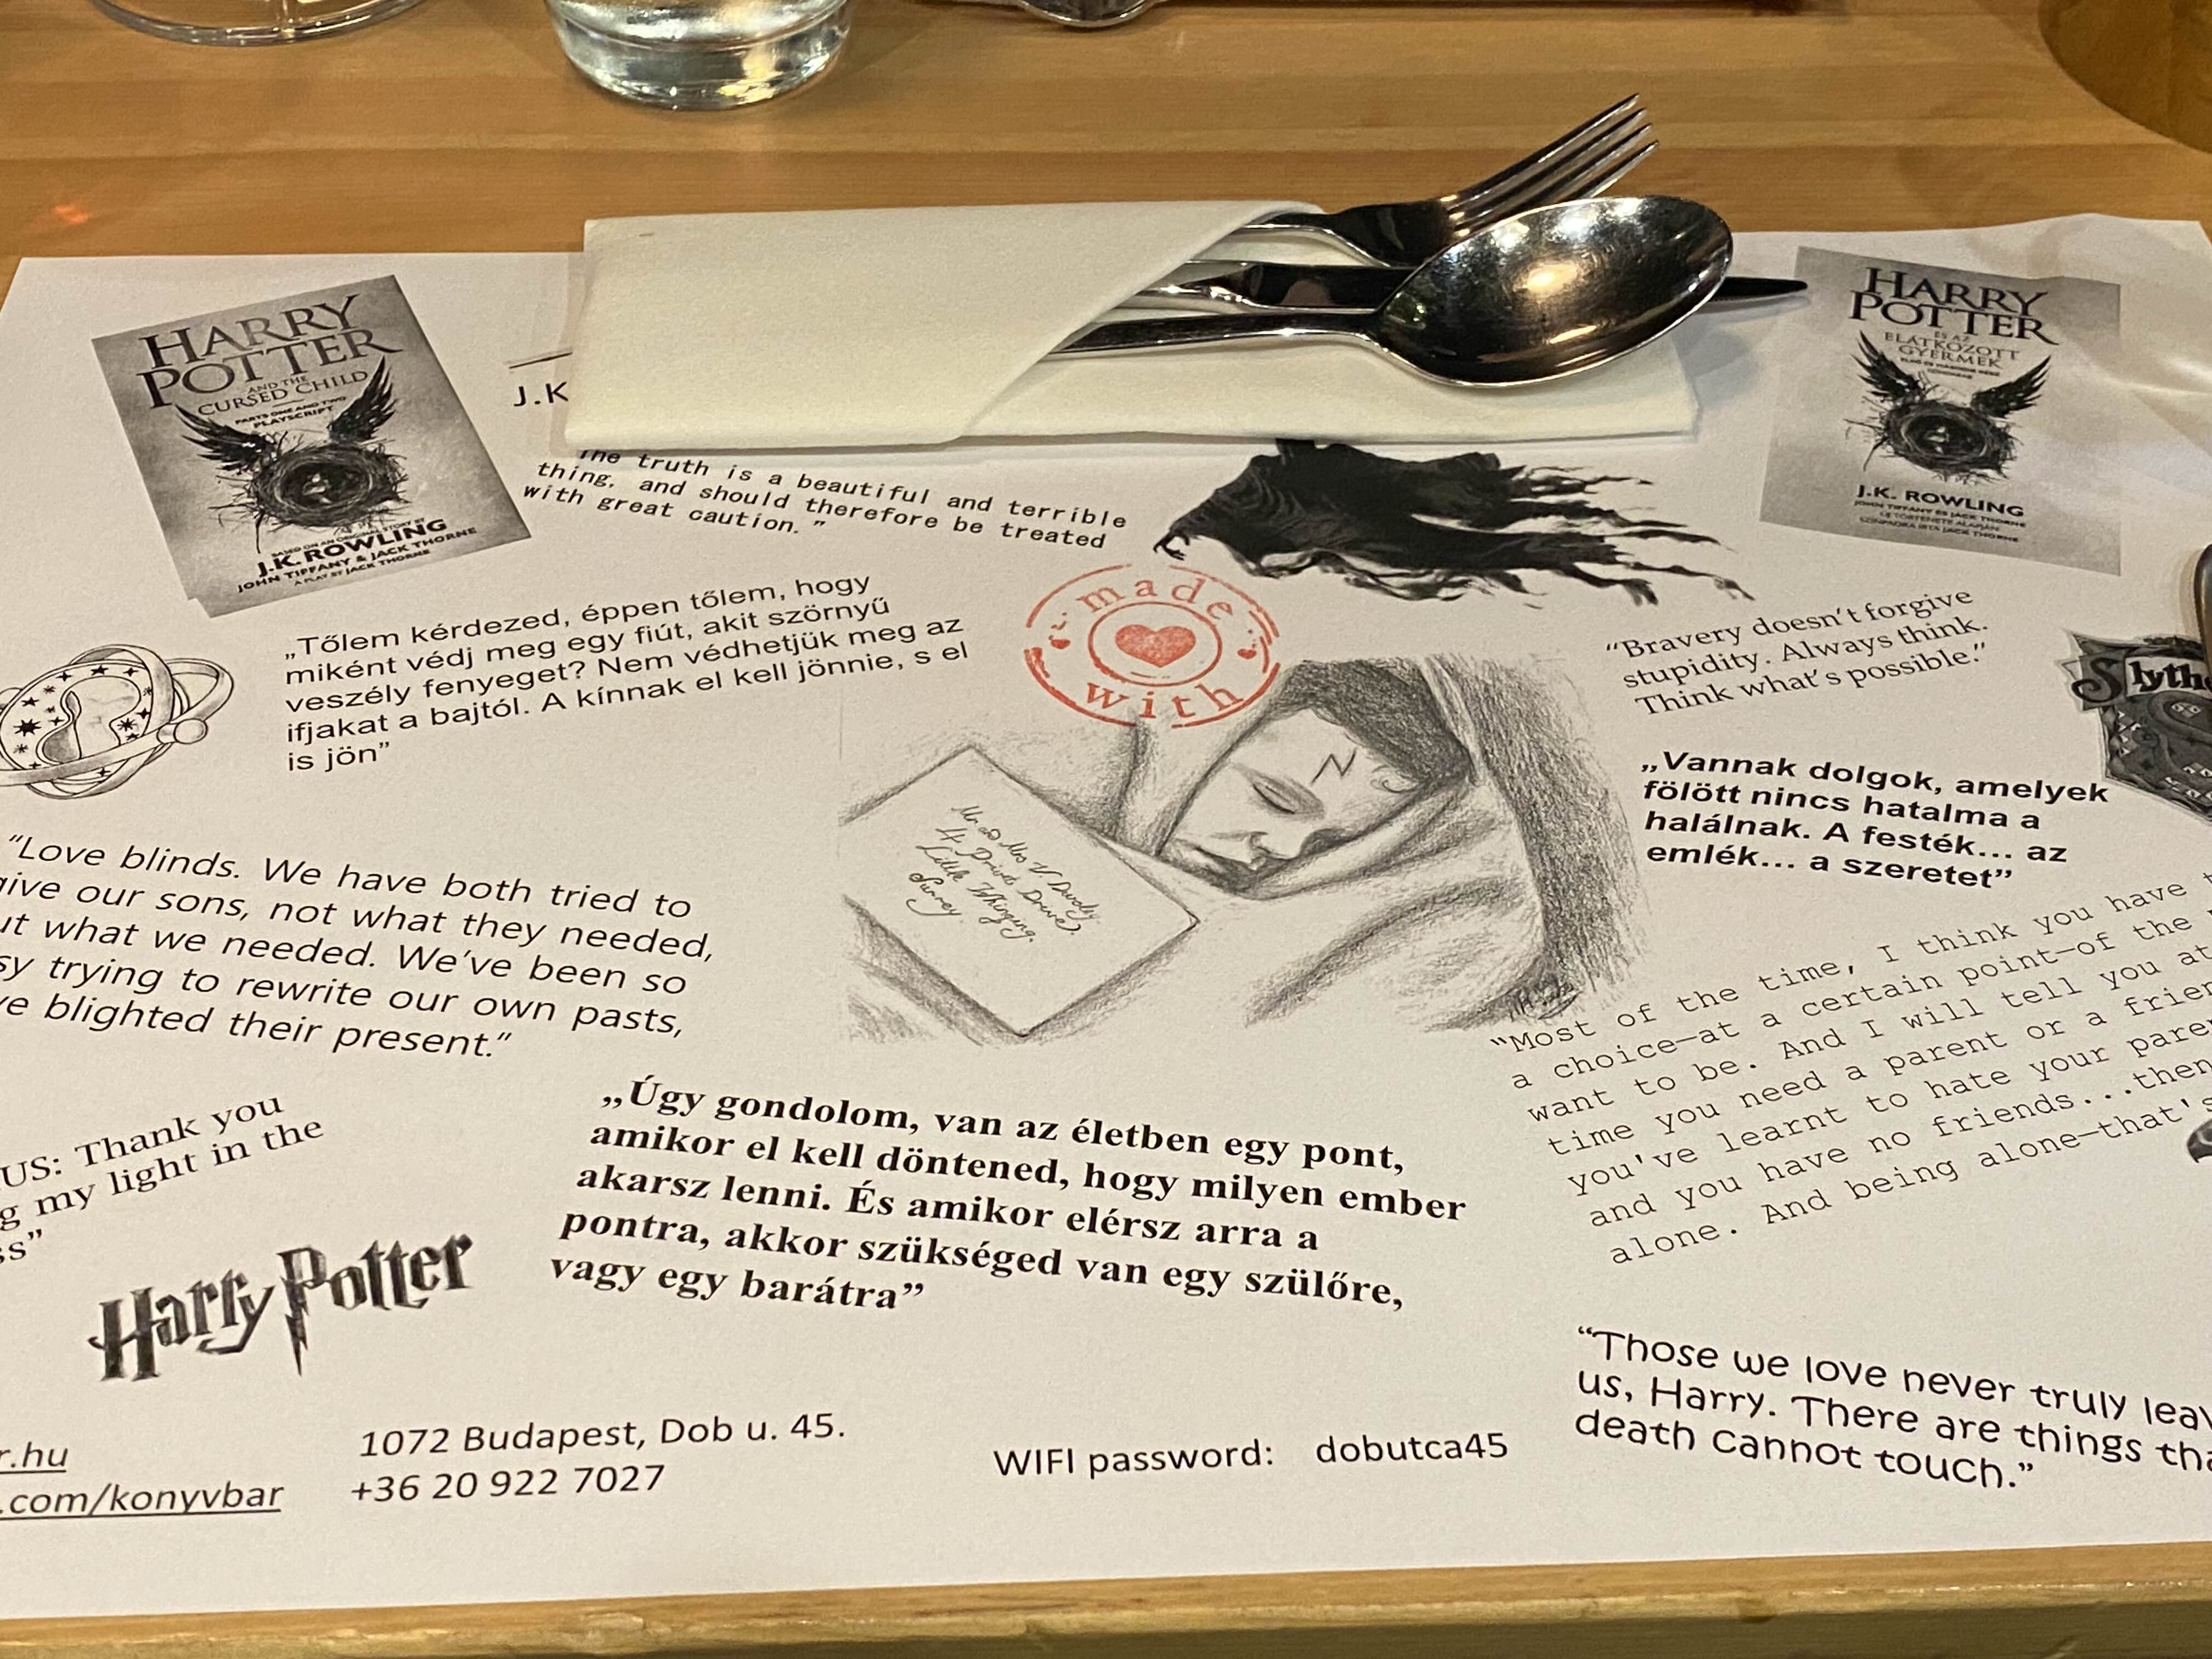 HARRY
POTTER
AND THE
CURSED CHILD
PARTS ONE AND TWO
PLAYSCRIPT
BASED ON AN ORIGINAL STORY BY
J.K. ROWLING
JOHN TIFFANY & JACK THORNE
A PLAY BY JACK THORNE
J.K
HARRY
POTTER
ÉS AZ
ELÁTKOZOTT
GYERMEK
J.K. ROWLING
JOHN TIFFANY ÉS JACK THORNE
ÚJ TÖRTÉNETE ALAPJÁN
SZÍNPADRA ÍRTA JACK THORNE
The truth is a beautiful and terrible
thing, and should therefore be treated
with great caution.”
made
with
„Tőlem kérdezed, éppen tőlem, hogy
miként védj meg egy fiút, akit szörnyű
veszély fenyeget? Nem védhetjük meg az
ifjakat a bajtól. A kínnak el kell jönnie, s el
is jön”
“Bravery doesn’t forgive
stupidity. Always think.
Think what’s possible.”
Slythe
„Vannak dolgok, amelyek
fölött nincs hatalma a
halálnak. A festék… az
emlék… a szeretet”
Mr & Mrs V Dursley.
4 Privet Drive.
Little Whinging.
Surrey.
“Love blinds. We have both tried to
give our sons, not what they needed,
ut what we needed. We’ve been so
sy trying to rewrite our own pasts,
ve blighted their present.”
“Most of the time, I think you have t
a choice—at a certain point—of the
want to be. And I will tell you at
time you need a parent or a frien
you've learnt to hate your paren
and you have no friends...then
alone. And being alone—that's
US: Thank you
g my light in the
ss”
„Úgy gondolom, van az életben egy pont,
amikor el kell döntened, hogy milyen ember
akarsz lenni. És amikor elérsz arra a
pontra, akkor szükséged van egy szülőre,
vagy egy barátra”
Harry Potter
“Those we love never truly leav
us, Harry. There are things tha
death cannot touch.”
r.hu
.com/konyvbar
1072 Budapest, Dob u. 45.
+36 20 922 7027
WIFI password: dobutca45